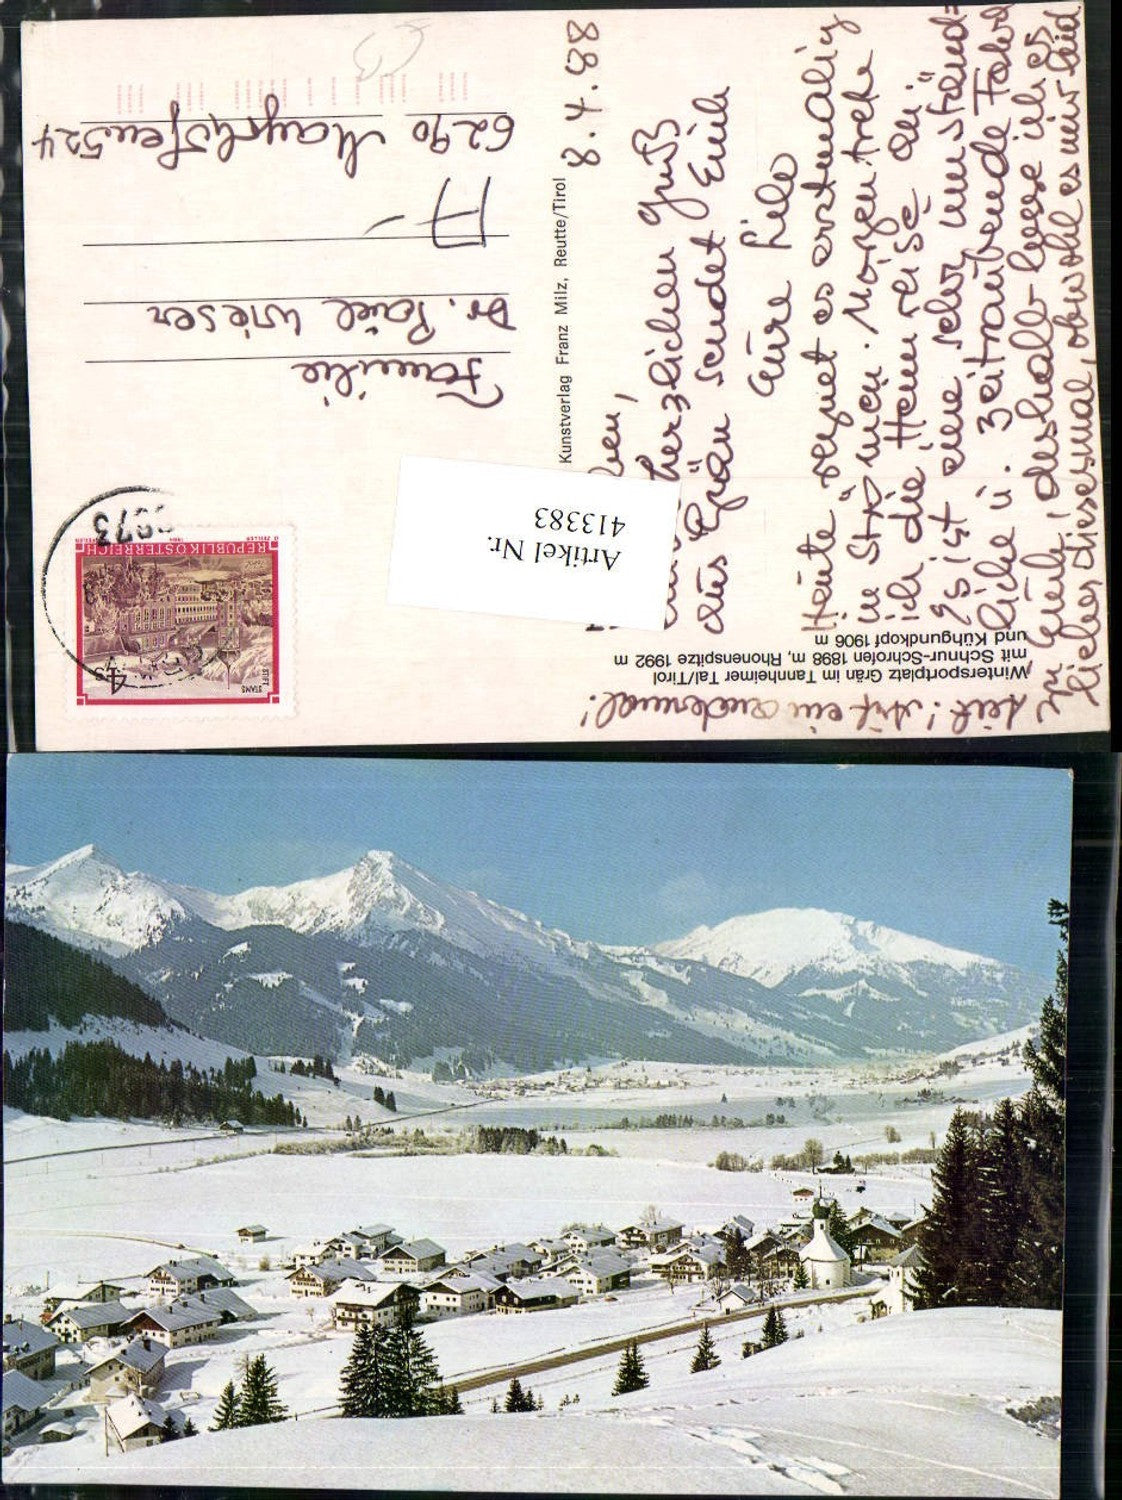 Wintersportplatz Grän im Tannheimer Tal/Tirol
mit Schnur-Schrofen 1898 m, Rhonenspitze 1992 m
und Kühgundkopf 1906 m
8.4.88
herzlichen Gruß
aus Grän sendet Euch
Eure Lilo
Heute regnet es erstmalig
in Strömen. Morgen trete
ich die Heimreise an.
Es ist eine sehr umständ=
liche u. zeitraubende Fahrt
zu Euch, deshalb lasse ich es
lieber diesesmal, obwohl es mir leid
tut! Auf ein andermal!
Kunstverlag Franz Milz, Reutte/Tirol
Artikel Nr.
413383
REPUBLIK ÖSTERREICH
STIFT
STAMS
4 S
Familie
Dr. Paul Wieser
A-
6290 Mayrhofen 524